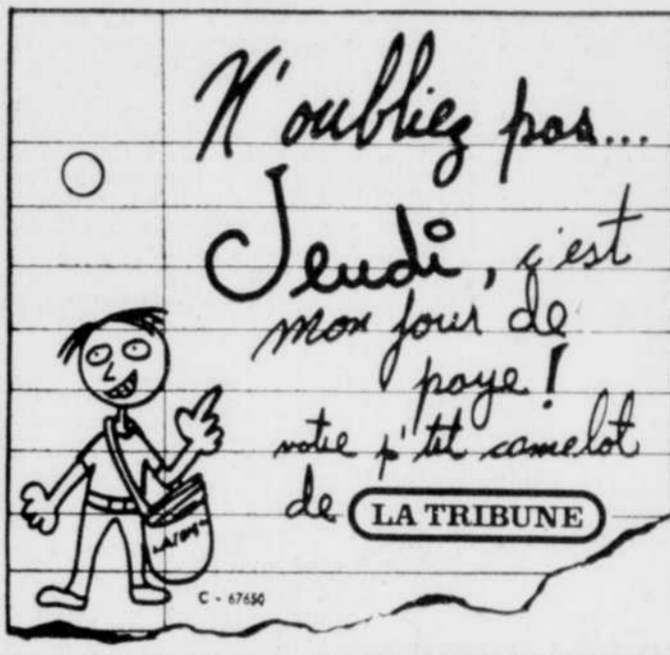 N'oubliez pas...
Jeudi, c'est
mon jour de
paye!
votre p'tit camelot
de LA TRIBUNE
C - 67650